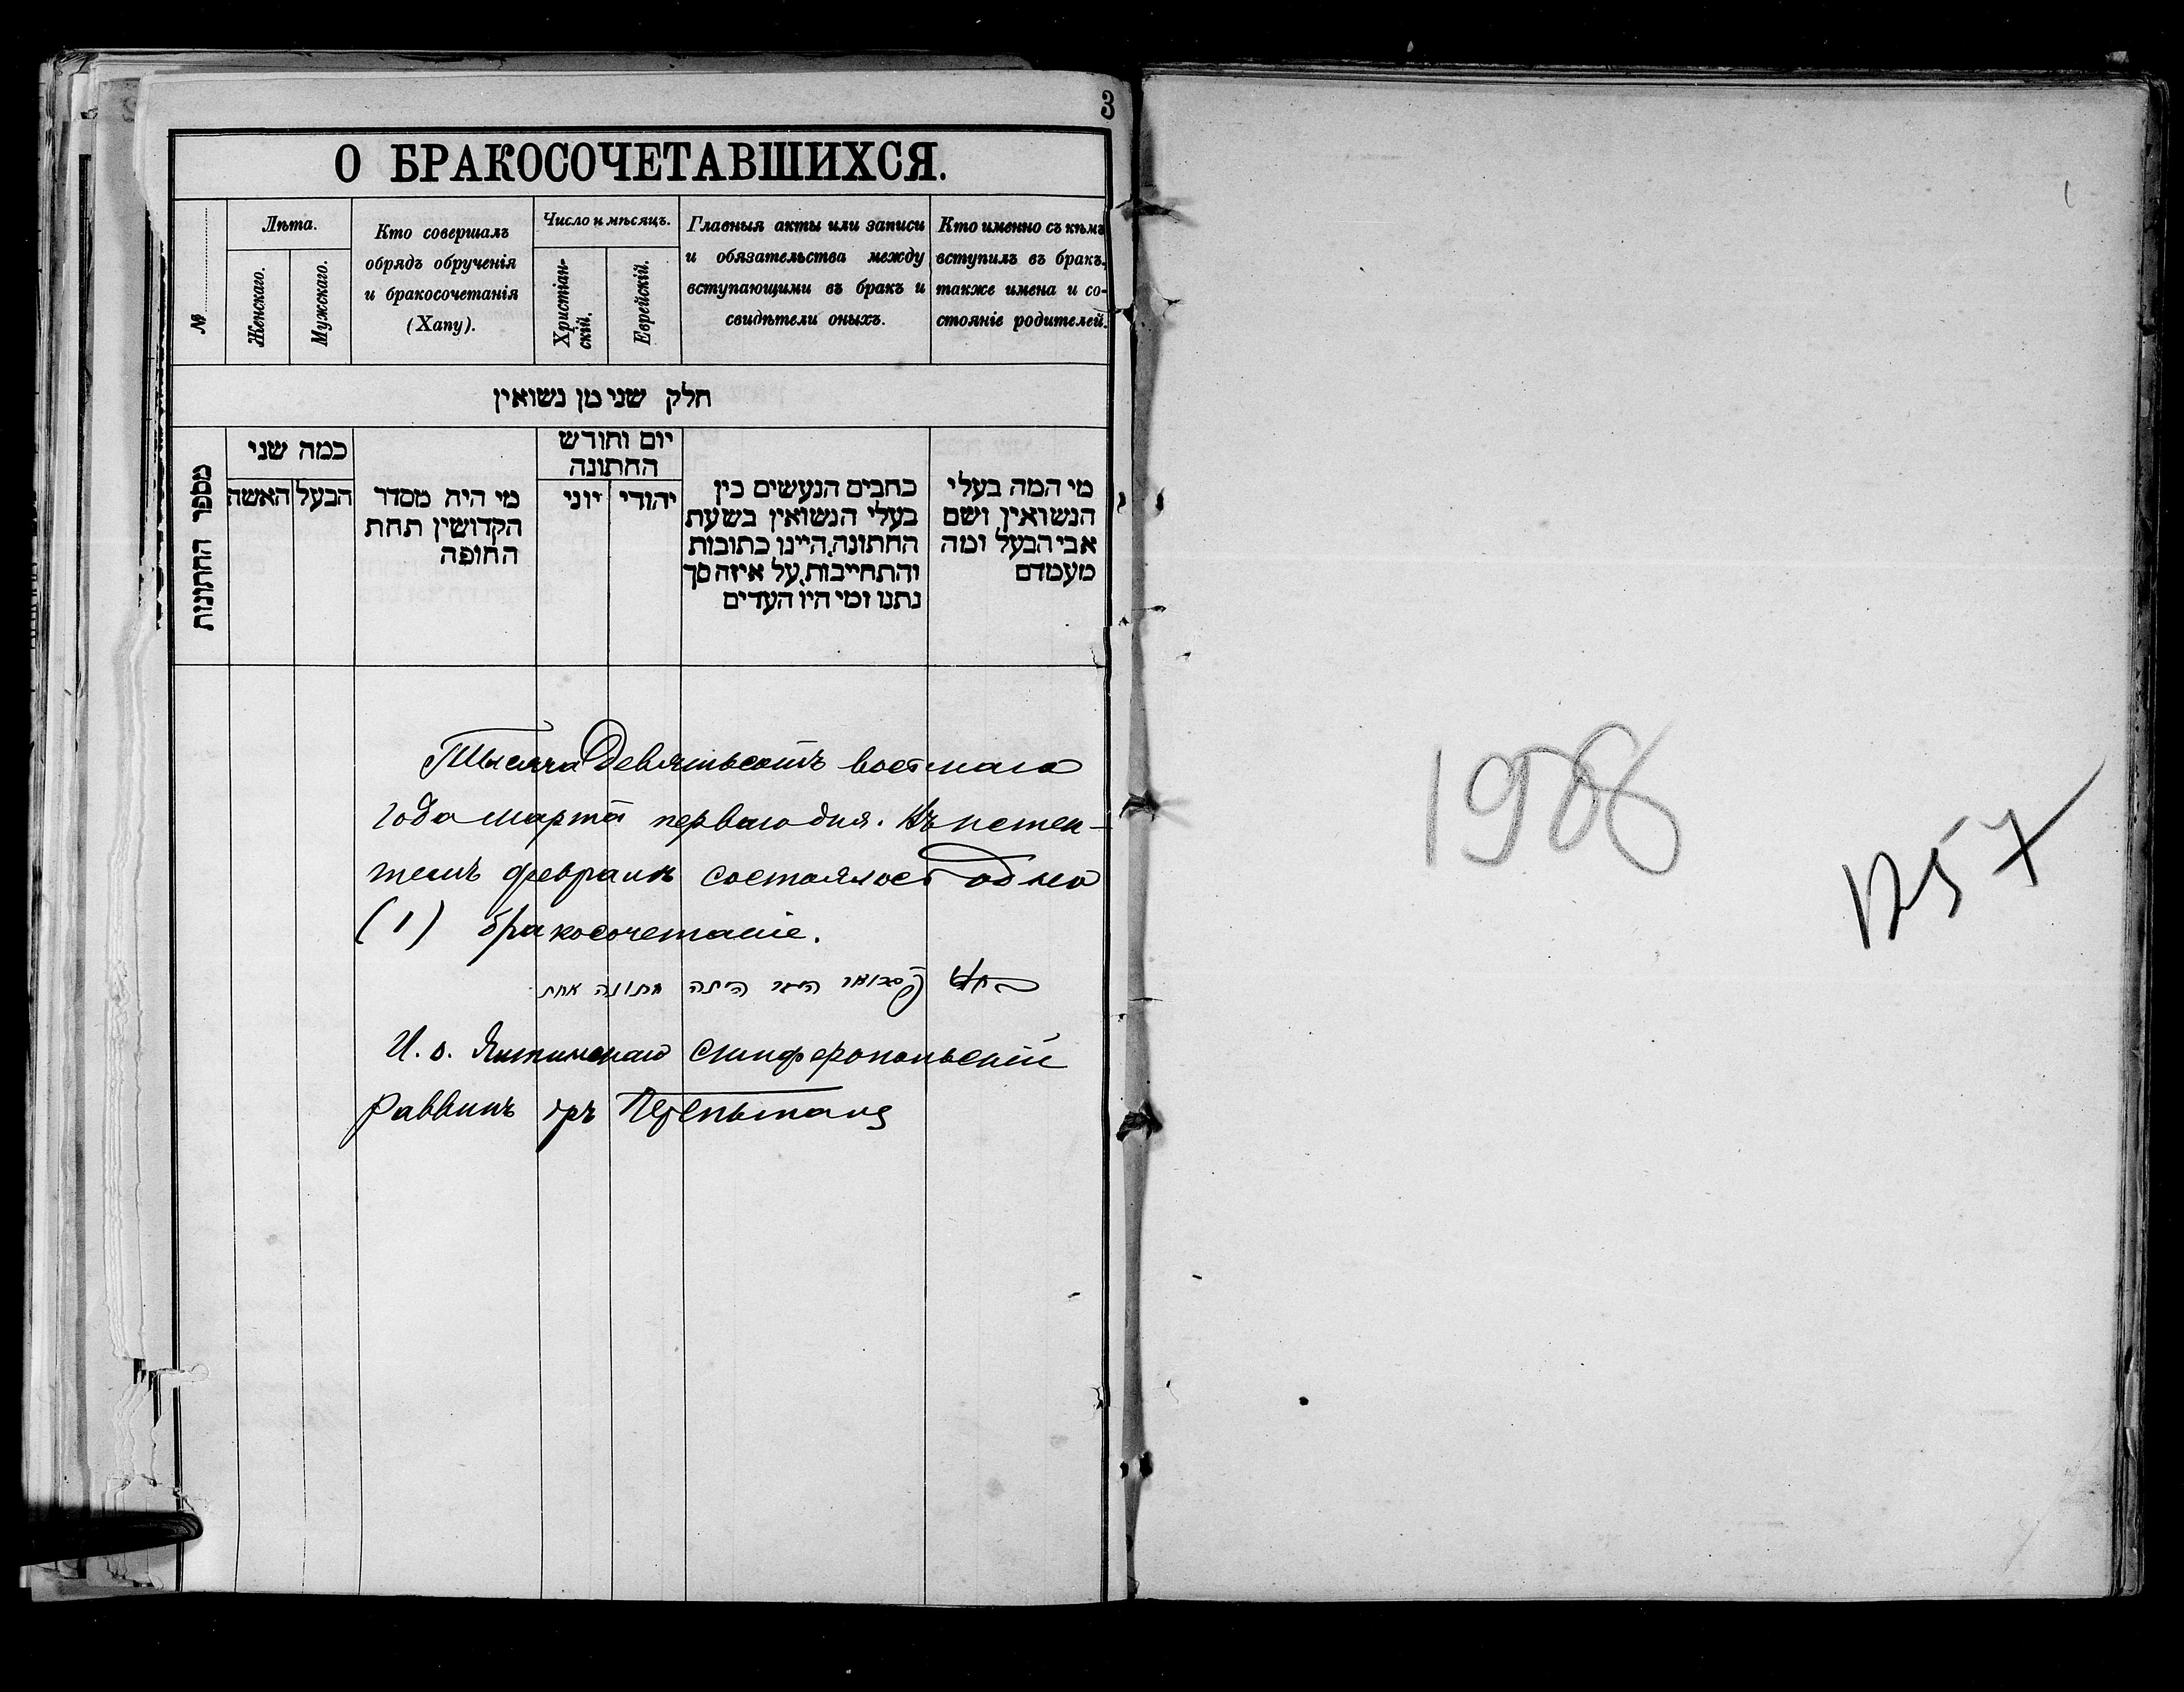 3
О БРАКОСОЧЕТАВШИХСЯ.
№
Лѣта.
Женскаго.
Мужскаго.
Кто совершалъ
обрядъ обрученія
и бракосочетанія
(Хапу).
Число и мѣсяцъ.
Христіан-
скій.
Еврейскій.
Главныя акты или записи
и обязательства между
вступающими въ бракъ и
свидѣтели оныхъ.
Кто именно съ кѣмъ
вступилъ въ бракъ,
также имена и со-
стояніе родителей.
חלק שני מן נשואין
מספר החתונות
כמה שני
האשה
הבעל
מי היה מסדר
הקדושין תחת
החופה
יום וחודש
החתונה
יוני
יהודי
כתבים הנעשים בין
בעלי הנשואין בשעת
החתונה, היינו כתובות
והתחייבות, על איזה סך
נתנו ומי היו העדים
מי המה בעלי
הנשואין ושם
אבי הבעל ומה
מעמדם
Тысяча девятьсотъ восьмаго
года марта перваго дня. Въ истек-
шемъ февралѣ состоялось одно
(1) бракосочетаніе.
היתה חתונה אחת
И. о. Ялтинскаго Симферопольскій
Раввинъ
1908
1257